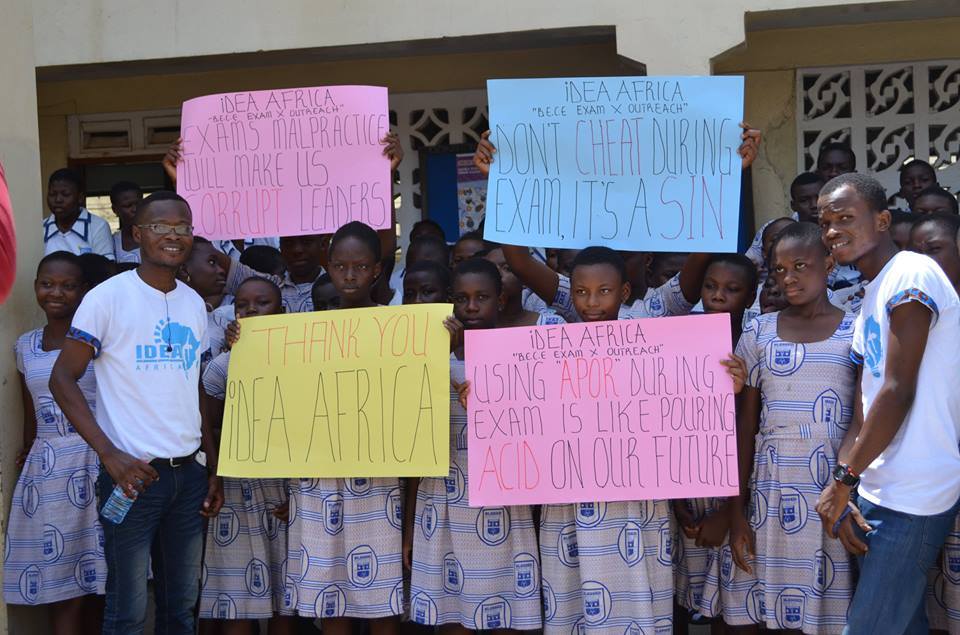 iDEA AFRICA
"BECE EXAM X OUTREACH"
EXAMS MALPRACTICE
WILL MAKE US
CORRUPT LEADERS
iDEA AFRICA
"BECE EXAM X OUTREACH"
DON'T CHEAT DURING
EXAM, IT'S A SIN
THANK YOU
iDEA AFRICA
iDEA AFRICA
"BECE EXAM X OUTREACH"
USING "APOR" DURING
EXAM IS LIKE POURING
ACID ON OUR FUTURE
IDEA
AFRICA